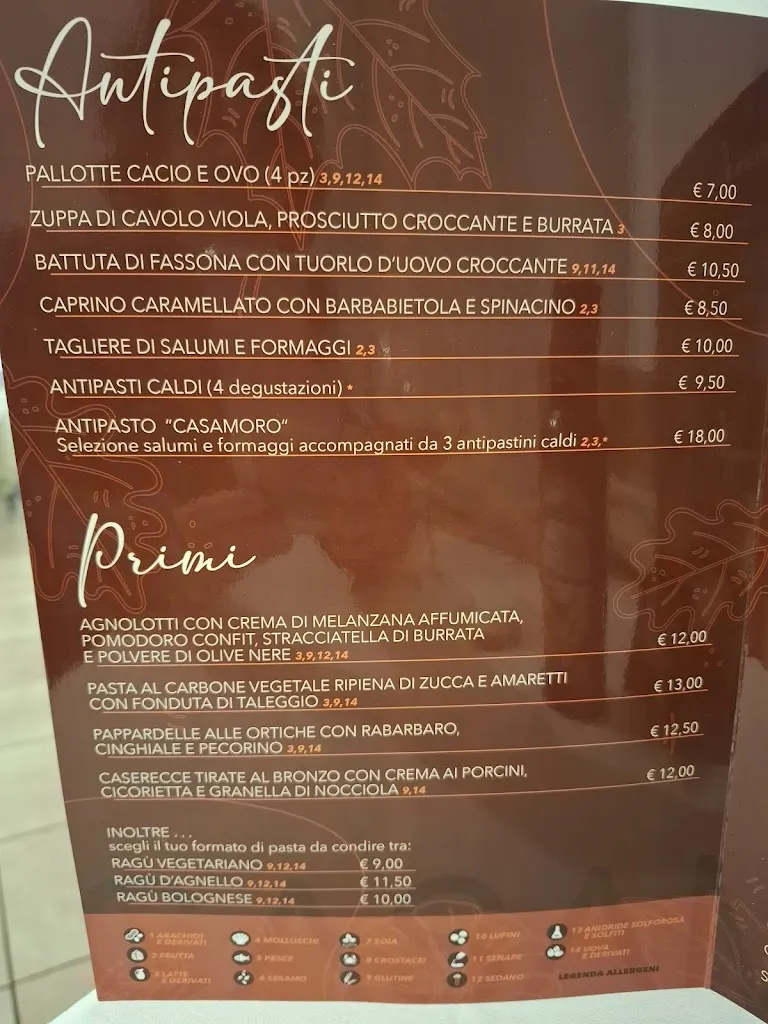 Antipasti
PALLOTTE CACIO E OVO (4 pz) 3,9,12,14 € 7,00
ZUPPA DI CAVOLO VIOLA, PROSCIUTTO CROCCANTE E BURRATA 3 € 8,00
BATTUTA DI FASSONA CON TUORLO D'UOVO CROCCANTE 9,11,14 € 10,50
CAPRINO CARAMELLATO CON BARBABIETOLA E SPINACINO 2,3 € 8,50
TAGLIERE DI SALUMI E FORMAGGI 2,3 € 10,00
ANTIPASTI CALDI (4 degustazioni) * € 9,50
ANTIPASTO "CASAMORO"
Selezione salumi e formaggi accompagnati da 3 antipastini caldi 2,3,* € 18,00
Primi
AGNOLOTTI CON CREMA DI MELANZANA AFFUMICATA,
POMODORO CONFIT, STRACCIATELLA DI BURRATA
E POLVERE DI OLIVE NERE 3,9,12,14 € 12,00
PASTA AL CARBONE VEGETALE RIPIENA DI ZUCCA E AMARETTI
CON FONDUTA DI TALEGGIO 3,9,14 € 13,00
PAPPARDELLE ALLE ORTICHE CON RABARBARO,
CINGHIALE E PECORINO 3,9,14 € 12,50
CASERECCE TIRATE AL BRONZO CON CREMA AI PORCINI,
CICORIETTA E GRANELLA DI NOCCIOLA 9,14 € 12,00
INOLTRE ...
scegli il tuo formato di pasta da condire tra:
RAGÙ VEGETARIANO 9,12,14 € 9,00
RAGÙ D'AGNELLO 9,12,14 € 11,50
RAGÙ BOLOGNESE 9,12,14 € 10,00
1 ARACHIDI E DERIVATI
2 FRUTTA
3 LATTE E DERIVATI
4 MOLLUSCHI
5 PESCE
6 SESAMO
7 SOIA
8 CROSTACEI
9 GLUTINE
10 LUPINI
11 SENAPE
12 SEDANO
13 ANIDRIDE SOLFOROSA E SOLFITI
14 UOVA E DERIVATI
LEGENDA ALLERGENI